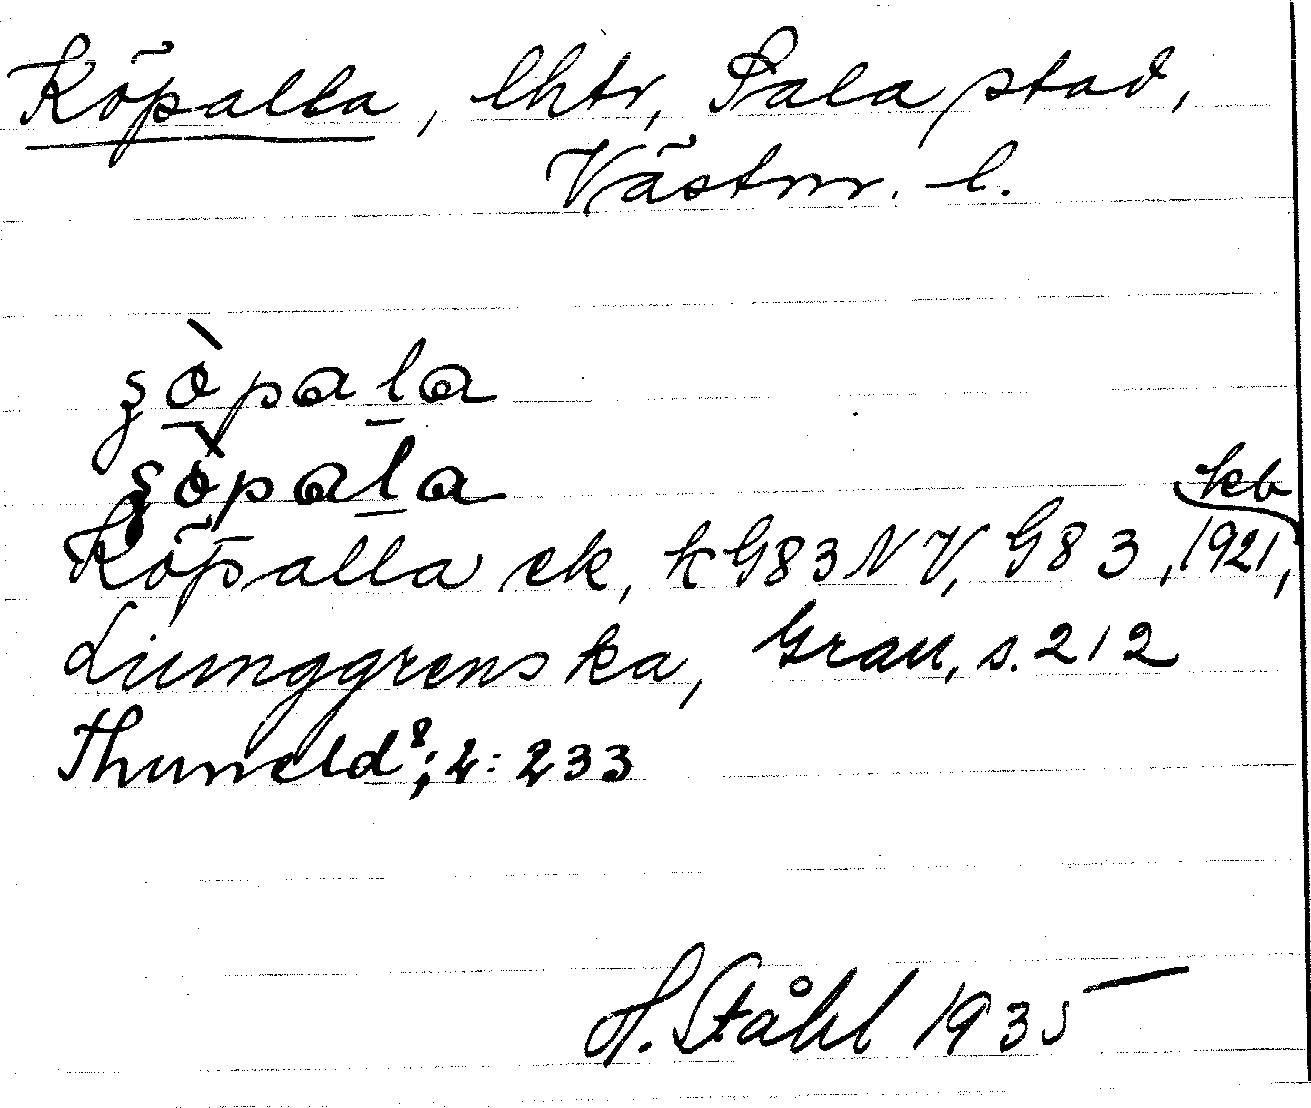 Köpalla, lhtr, Sala stad,
Västm. l.
ʂò̱paḻa
ʂòpaḻa
Köpalla ek, kG83NV, G83, jeb 1921,
Ljunggrenska, Grau, s. 212
Thuneld⁸; 2: 233
H. Ståhl 1935